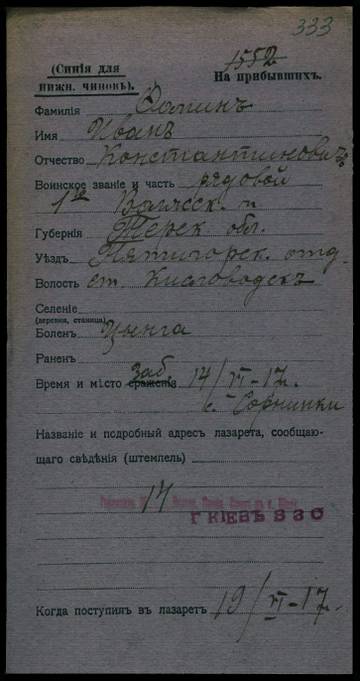 333
1552
(Синія для
нижн. чиновъ).
На прибывшихъ.
Фамилія Фоминъ
Имя Иванъ
Отчество Константиновичъ
Воинское званіе и часть рядовой
1го Волжск. п
Губернія Терск обл.
Уѣздъ Пятигорск. отд
Волость ст. Кисловодскъ
Селеніе
(деревня, станица)
Боленъ Цынга
Раненъ
Время и мѣсто сраженія заб. 14/VI-17.
с.
Названіе и подробный адресъ лазарета, сообщаю-
щаго свѣдѣнія (штемпель)
14
Г КІЕВЪ 330
Когда поступилъ въ лазаретъ 19/VI-17.